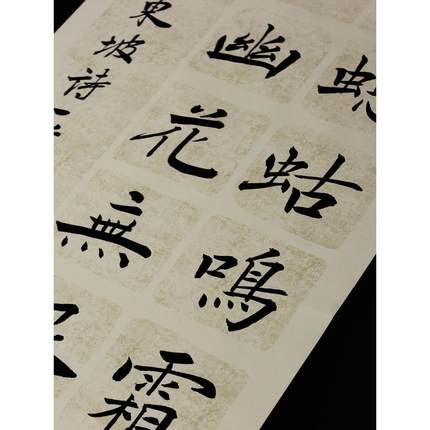 蛄鳴霜
幽花無
東坡诗